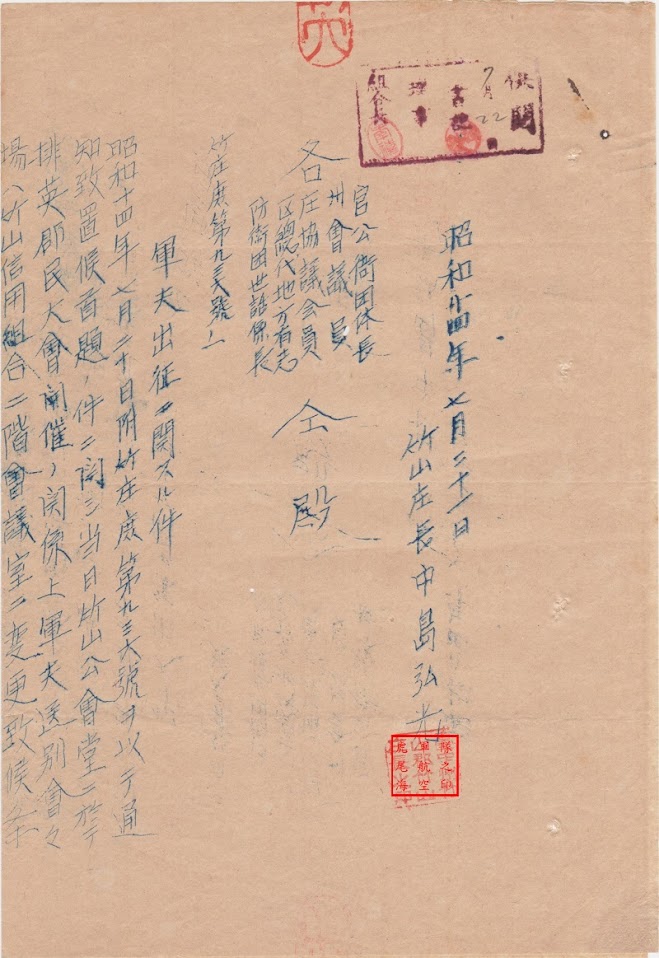 供閲
7月22日
書記
理事
組合長
昭和十四年七月二十一日
竹山庄長中島弘光
官公衙団体長
州會議員
各庄協議会員
区總代地方有志
防衛団世話係長
仝殿
竹庄庶第九三六號ノ一
軍夫出征ニ関スル件
昭和十四年七月二十日附竹庄庶第九三六號ヲ以テ通
知致置候首題ノ件ニ関シ当日竹山公會堂ニ於テ
排英郡民大會開催ノ関係上軍夫送別會々
場ハ竹山信用組合二階會議室ニ変更致候条